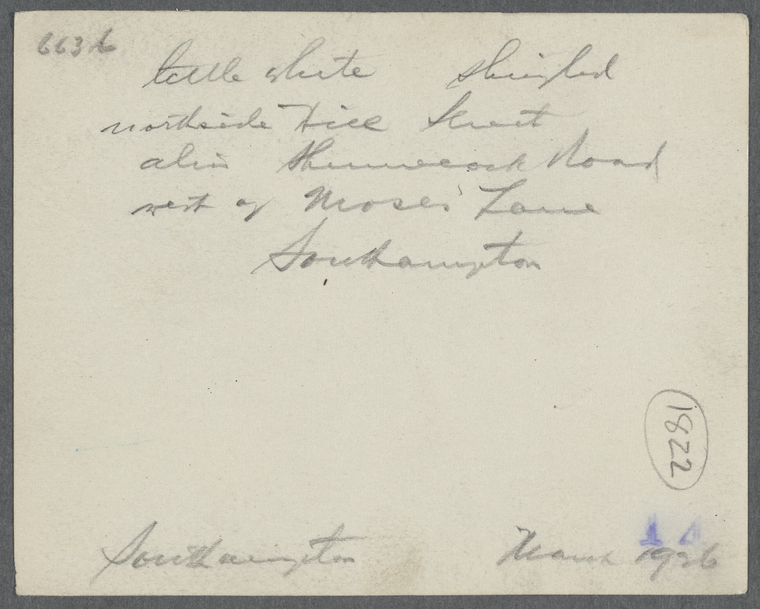 663b
little white shingled
northside Hill Street
alias Shinnecock Road
west of Moses Lane
Southampton
1822
Southampton March 1926